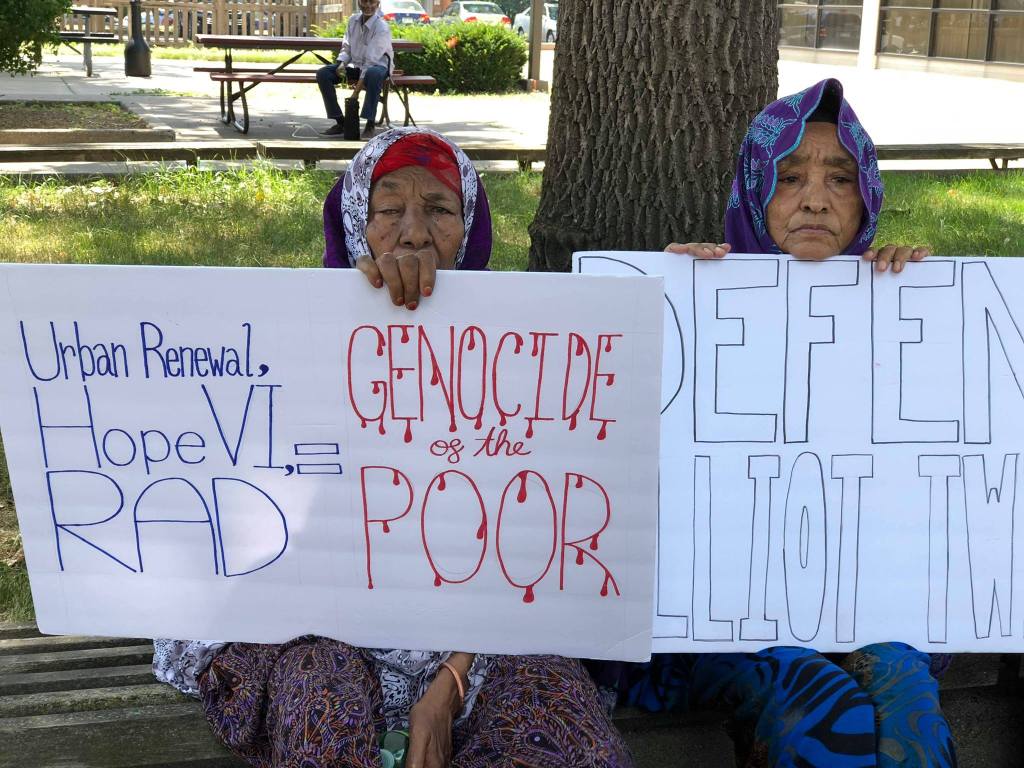 Urban Renewal,
Hope VI, =
RAD
GENOCIDE
of the
POOR
DEFEN
ELLIOT TW